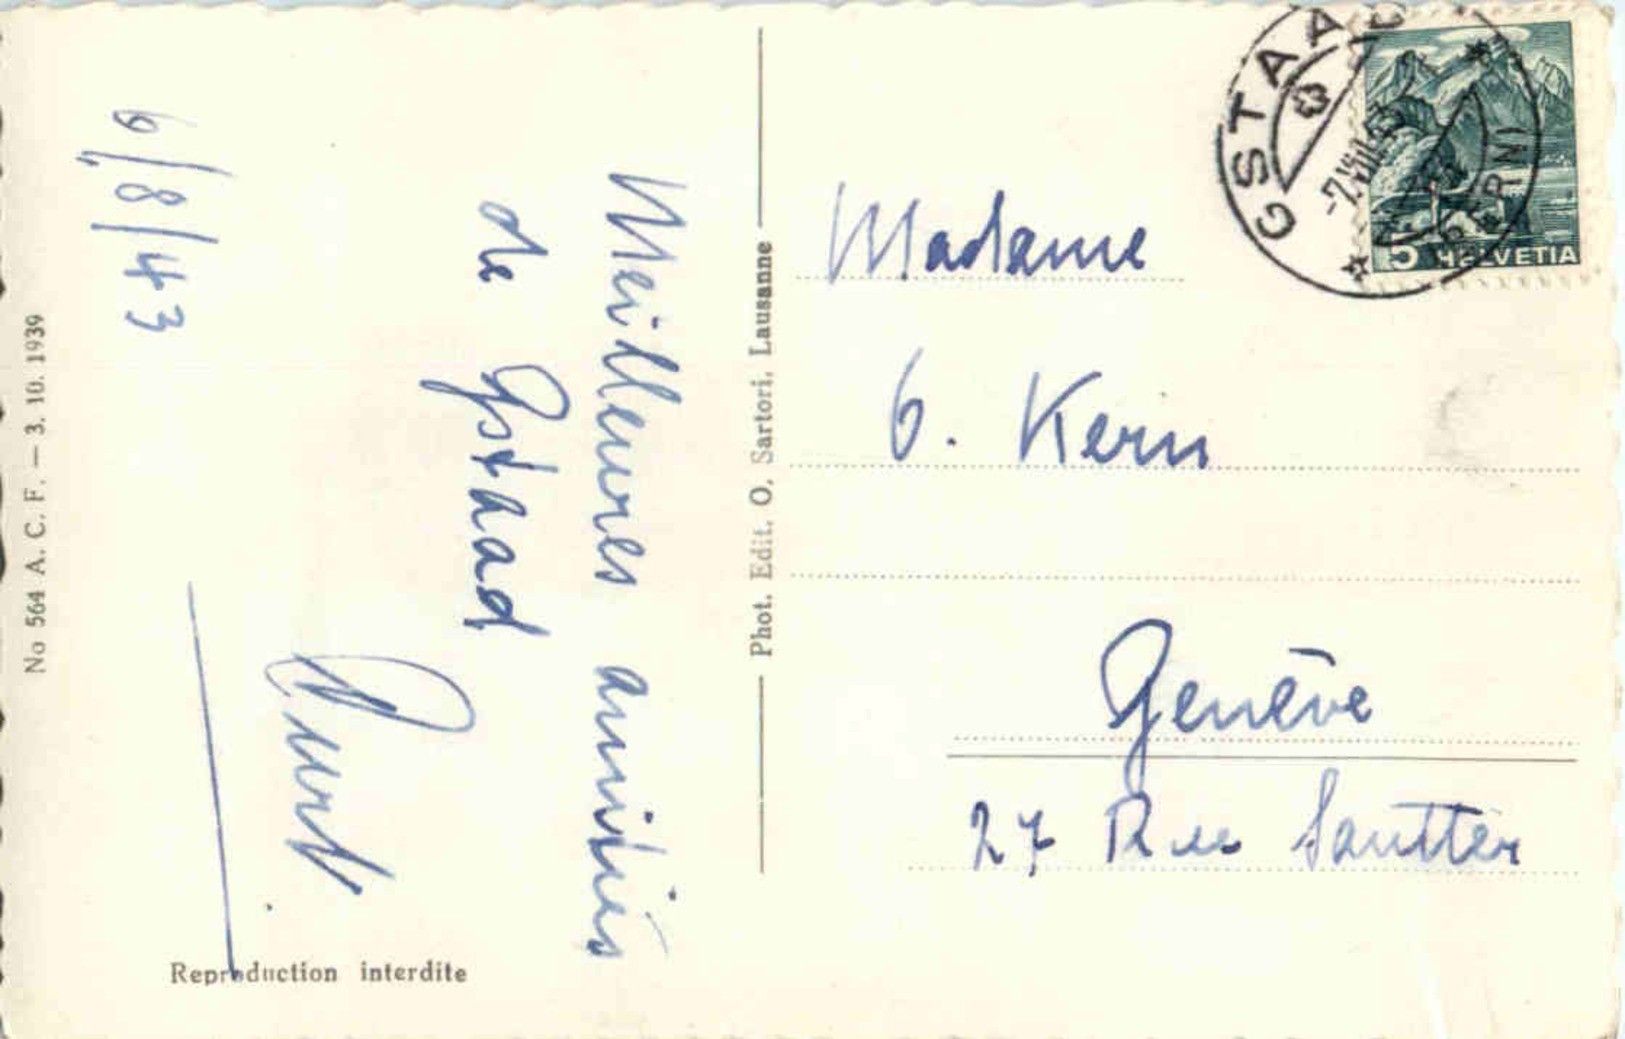 6/8/43
Meilleures amitiés
de Gstaad
No 564 A. C. F. — 3. 10. 1939
Reproduction interdite
Phot. Edit. O. Sartori, Lausanne
GSTAAD
BERN
5 HELVETIA
Madame
G. Kern
Genève
27 Rue Sautter